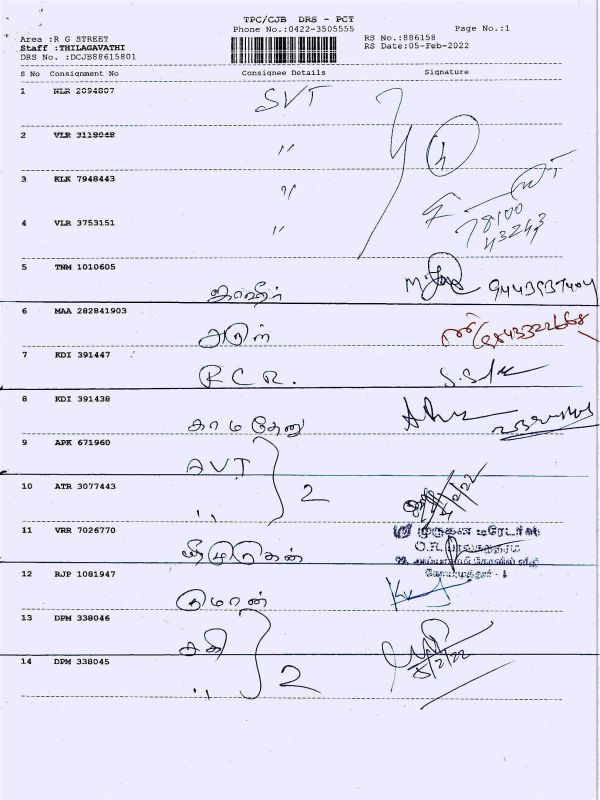 TPC/CJB DRS - PCT
Phone No.:0422-3505555
Page No.:1
Area :R G STREET
RS No.:886158
Staff :THILAGAVATHI
RS Date:05-Feb-2022
DRS No. :DCJB88615801
S No Consignment No Consignee Details Signature
1 NLR 2094807 SVT
2 VLR 3118048 〃 4
3 KLK 7948443 〃
78100
43243
4 VLR 3753151 〃
5 TNM 1010605
6 MAA 282841903 அருள் 9843322668
7 KDI 391447 R.C.R.
8 KDI 391438 காமதேனு
9 APK 671960 AVT
2
10 ATR 3077443 〃
11 VRR 7026770 முருகன்
O.R.
12 RJP 1081947
13 DPM 338046 சக்தி
2 5/2/22
14 DPM 338045 〃